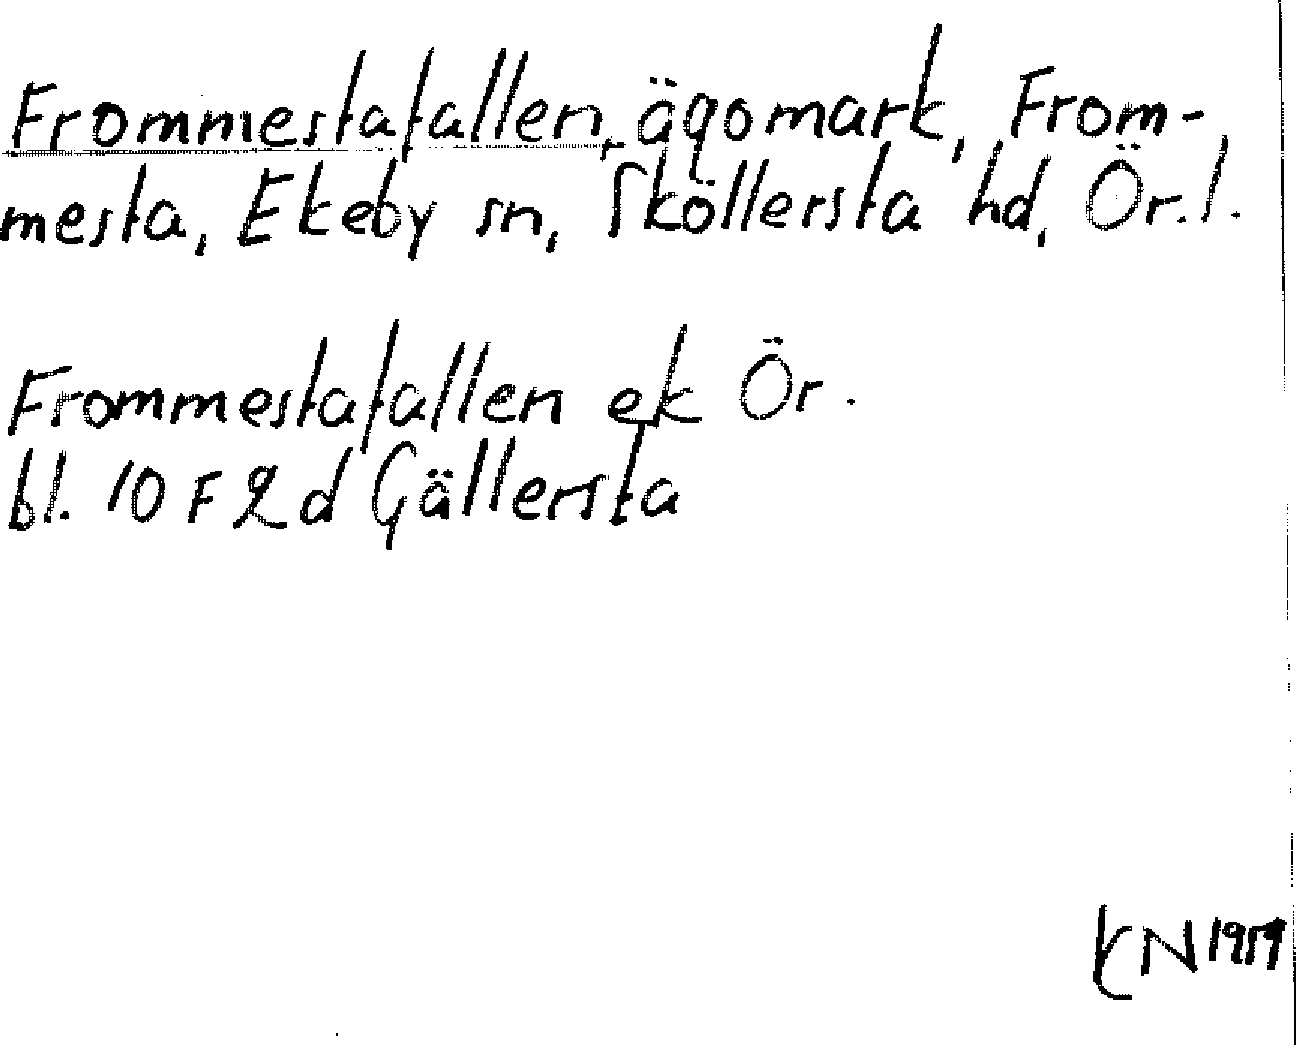 Frommestafallen, ägomark, From-
mesta, Ekeby sn, Sköllersta hd, Ör. l.
Frommestafallen ek Ör.
bl. 10 F 2 d Gällersta
KN 1959